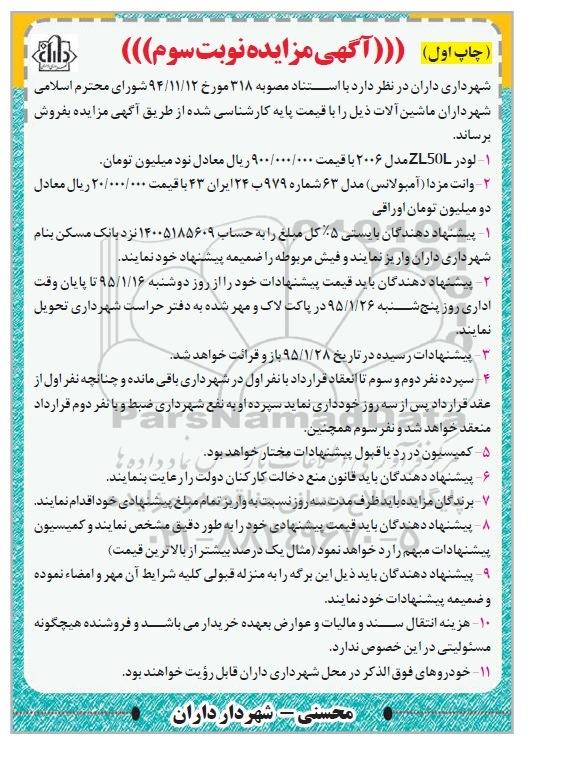 (چاپ اول) (((آگهی مزایده نوبت سوم)))
شهرداری داران در نظر دارد با استناد مصوبه ۳۱۸ مورخ ۹۴/۱۱/۱۲ شورای محترم اسلامی
شهر داران ماشین آلات ذیل را با قیمت پایه کارشناسی شده از طریق آگهی مزایده بفروش
برساند.
۱- لودر ZL50L مدل ۲۰۰۶ با قیمت ۹۰۰/۰۰۰/۰۰۰ ریال معادل نود میلیون تومان.
۲- وانت مزدا (آمبولانس) مدل ۶۳ شماره ۹۷۹ ب ۲۴ ایران ۴۳ با قیمت ۲۰/۰۰۰/۰۰۰ ریال معادل
دو میلیون تومان اوراقی
۱- پیشنهاد دهندگان بایستی ۵٪ کل مبلغ را به حساب ۱۴۰۰۵۱۸۵۶۰۹ نزد بانک مسکن بنام
شهرداری داران واریز نمایند و فیش مربوطه را ضمیمه پیشنهاد خود نمایند.
۲- پیشنهاد دهندگان باید قیمت پیشنهادات خود را از روز دوشنبه ۹۵/۱/۱۶ تا پایان وقت
اداری روز پنج‌شنبه ۹۵/۱/۲۶ در پاکت لاک و مهر شده به دفتر حراست شهرداری تحویل
نمایند.
۳- پیشنهادات رسیده در تاریخ ۹۵/۱/۲۸ باز و قرائت خواهد شد.
۴- سپرده نفر دوم و سوم تا انعقاد قرارداد با نفر اول در شهرداری باقی مانده و چنانچه نفر اول از
عقد قرارداد پس از سه روز خودداری نماید سپرده او به نفع شهرداری ضبط و با نفر دوم قرارداد
منعقد خواهد شد و نفر سوم همچنین.
۵- کمیسیون در رد یا قبول پیشنهادات مختار خواهد بود.
۶- پیشنهاد دهندگان باید قانون منع دخالت کارکنان دولت را رعایت بنمایند.
۷- برندگان مزایده باید ظرف مدت سه روز نسبت به واریز تمام مبلغ پیشنهادی خود اقدام نمایند.
۸- پیشنهاد دهندگان باید قیمت پیشنهادی خود را به طور دقیق مشخص نمایند و کمیسیون
پیشنهادات مبهم را رد خواهد نمود (مثال یک درصد بیشتر از بالاترین قیمت)
۹- پیشنهاد دهندگان باید ذیل این برگه را به منزله قبولی کلیه شرایط آن مهر و امضاء نموده
و ضمیمه پیشنهادات خود نمایند.
۱۰- هزینه انتقال سند و مالیات و عوارض بعهده خریدار می باشد و فروشنده هیچگونه
مسئولیتی در این خصوص ندارد.
۱۱- خودروهای فوق الذکر در محل شهرداری داران قابل رؤیت خواهند بود.
محسنی - شهردار داران
ParsNamadData
۰۲۱-۸۸۳۴۹۶۷۰-۵